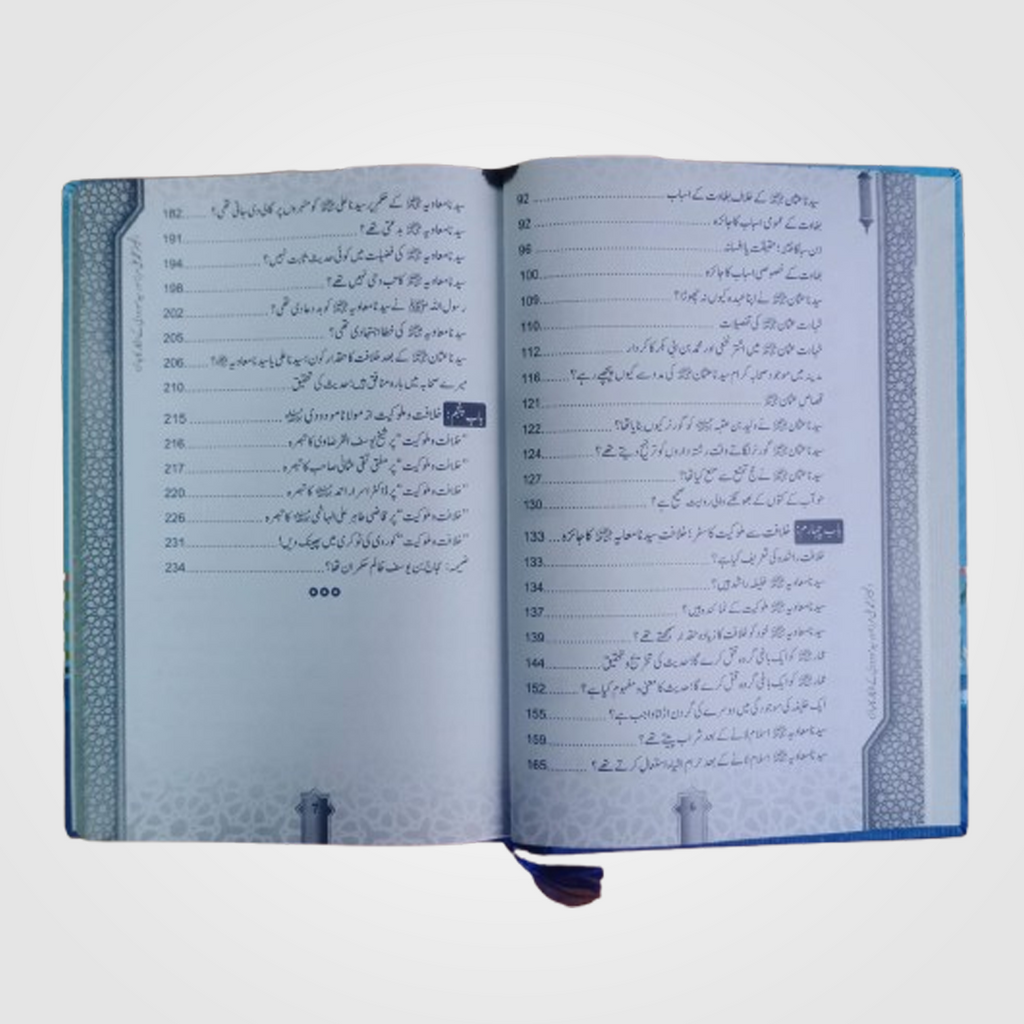 سیدنا عثمان ﷜ کے خلاف بغاوت کے اسباب ... 92
بغاوت کے عمومی اسباب کا جائزہ ... 92
ابن سبا کا فتنہ: حقیقت یا افسانہ ... 96
بغاوت کے خصوصی اسباب کا جائزہ ... 100
سیدنا عثمان ﷜ نے اپنا عہدہ کیوں نہ چھوڑا؟ ... 109
شہادت عثمان ﷜ کی تفصیلات ... 110
شہادت عثمان ﷜ میں اشتر نخعی اور محمد بن ابی بکر کا کردار ... 112
مدینہ میں موجود صحابہ کرام سیدنا عثمان ﷜ کی مدد سے کیوں پیچھے رہے؟ ... 116
قصاصِ عثمان ﷜ ... 121
سیدنا عثمان ﷜ نے ولید بن عقبہ ﷜ کو گورنر کیوں بنایا تھا؟ ... 122
سیدنا عثمان ﷜ گورنر لگاتے وقت رشتہ داروں کو ترجیح دیتے تھے؟ ... 124
سیدنا عثمان ﷜ نے حج تمتع سے منع کیا تھا؟ ... 127
حوآب کے کتوں کے بھونکنے والی روایت صحیح ہے؟ ... 130
باب چہارم: خلافت سے ملوکیت کا سفر: خلافتِ سیدنا معاویہ ﷜ کا جائزہ ... 133
خلافت راشدہ کی تعریف کیا ہے؟ ... 133
سیدنا معاویہ ﷜ خلیفہ راشد ہیں؟ ... 134
سیدنا معاویہ ﷜ ملوکیت کے نمائندہ ہیں؟ ... 137
سیدنا معاویہ ﷜ خود کو خلافت کا زیادہ حقدار سمجھتے تھے؟ ... 139
عمار ﷜ کو ایک باغی گروہ قتل کرے گا: حدیث کی تخریج و تحقیق ... 144
عمار ﷜ کو ایک باغی گروہ قتل کرے گا: حدیث کا معنی و مفہوم کیا ہے؟ ... 152
ایک خلیفہ کی موجودگی میں دوسرے کی گردن اڑانا واجب ہے؟ ... 155
سیدنا معاویہ ﷜ اسلام لانے کے بعد شراب پیتے تھے؟ ... 159
سیدنا معاویہ ﷜ اسلام لانے کے بعد حرام اشیاء استعمال کرتے تھے؟ ... 165
6
سیدنا معاویہ ﷜ کے حکم پر سیدنا علی ﷜ کو منبروں پر گالی دی جاتی تھی؟ ... 182
سیدنا معاویہ ﷜ بدعتی تھے؟ ... 191
سیدنا معاویہ ﷜ کی فضیلت میں کوئی حدیث ثابت نہیں؟ ... 194
سیدنا معاویہ ﷜ کاتب وحی نہیں تھے؟ ... 198
رسول اللہ ﷺ نے سیدنا معاویہ ﷜ کو بددعا دی تھی؟ ... 202
سیدنا معاویہ ﷜ کی خطا اجتہادی تھی؟ ... 205
سیدنا عثمان ﷜ کے بعد خلافت کا حقدار کون: سیدنا علی یا سیدنا معاویہ ﷠؟ ... 206
میرے صحابہ میں بارہ منافق ہیں: حدیث کی تحقیق ... 210
باب پنجم: خلافت و ملوکیت از مولانا مودودی ﷫ ... 215
"خلافت و ملوکیت" پر شیخ یوسف القرضاوی کا تبصرہ ... 216
"خلافت و ملوکیت" پر مفتی تقی عثمانی صاحب کا تبصرہ ... 217
"خلافت و ملوکیت" پر ڈاکٹر اسرار احمد ﷫ کا تبصرہ ... 220
"خلافت و ملوکیت" پر قاضی طاہر علی الہاشمی ﷫ کا تبصرہ ... 226
"خلافت و ملوکیت" کو ردی کی ٹوکری میں پھینک دیں! ... 231
ضمیمہ: حجاج بن یوسف ظالم حکمران تھا؟ ... 234
7